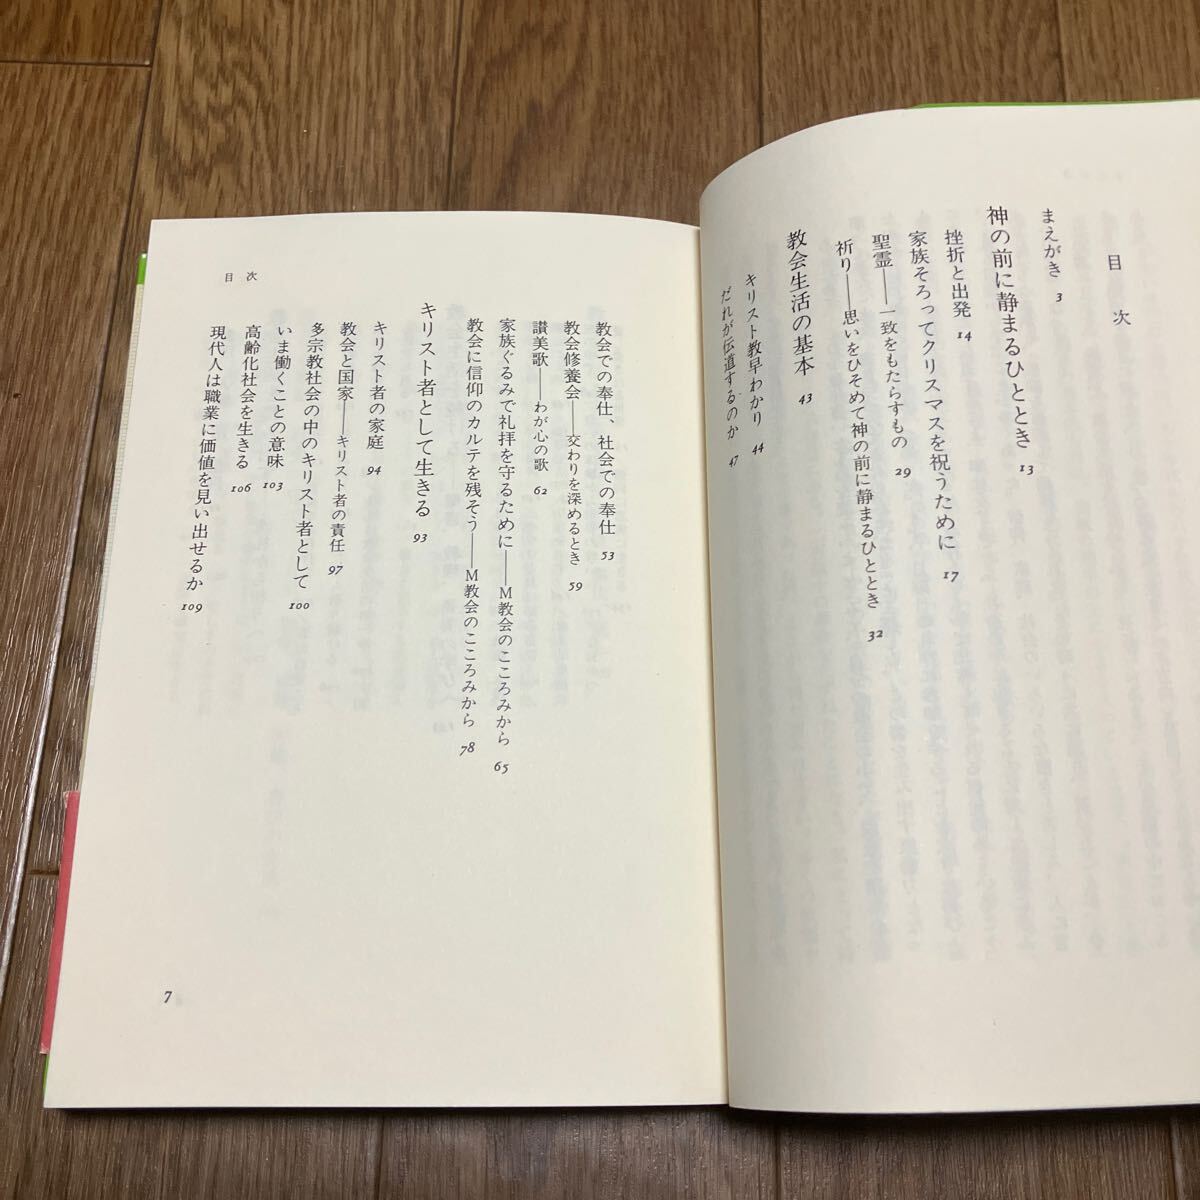 目次
まえがき 3
神の前に静まるひととき 13
挫折と出発 14
家族そろってクリスマスを祝うために 17
聖霊――一致をもたらすもの 29
祈り――思いをひそめて神の前に静まるひととき 32
教会生活の基本 43
キリスト教早わかり 44
だれが伝道するのか 47
目次
教会での奉仕、社会での奉仕 53
教会修養会――交わりを深めるとき 59
讃美歌――わが心の歌 62
家族ぐるみで礼拝を守るために――M教会のこころみから 65
教会に信仰のカルテを残そう――M教会のこころみから 78
キリスト者として生きる 93
キリスト者の家庭 94
教会と国家――キリスト者の責任 97
多宗教社会の中のキリスト者として 100
いま働くことの意味 103
高齢化社会を生きる 106
現代人は職業に価値を見い出せるか 109
7